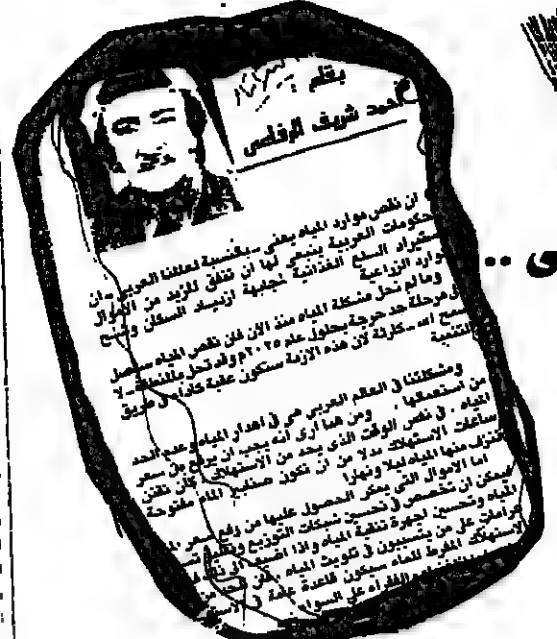 بقلم :
أحمد شريف الرفاعي
ان نقص موارد المياه يعني - بالنسبة لعالمنا العربي - ان
الحكومات العربية ينبغي لها ان تنفق المزيد من الاموال
استيراد السلع الغذائية لمجابهة ازدياد السكان
الموارد الزراعية
وما لم نحل مشكلة المياه منذ الآن فان نقص المياه سيصل
الى مرحلة جد حرجة بحلول عام ٢٠٢٥م وقد تحل بالمنطقة - لا
سمح الله - كارثة لان هذه الازمة ستكون عقبة كأداء في طريق
التنمية
ومشكلتنا في العالم العربي هي في اهدار المياه وعدم الحد
من استعمالها . ومن هنا أرى أنه يجب ان يرفع من سعر
المياه . في نفس الوقت الذي يحد من الاستهلاك كأن نقنن
ساعات الاستهلاك بدلا من ان تكون صنابير الماء مفتوحة
تنزف منها المياه ليلا ونهارا
اما الاموال التي يمكن الحصول عليها من رفع سعر
فيمكن ان تخصص في تحسين شبكات التوزيع
المياه وتحسين اجهزة تنقية المياه واذا اضيف الى ذلك
غرامات على من يتسببون في تلويث المياه
الاستهلاك المفرط للماء سيكون قاعدة عامة في
والفقراء على السواء